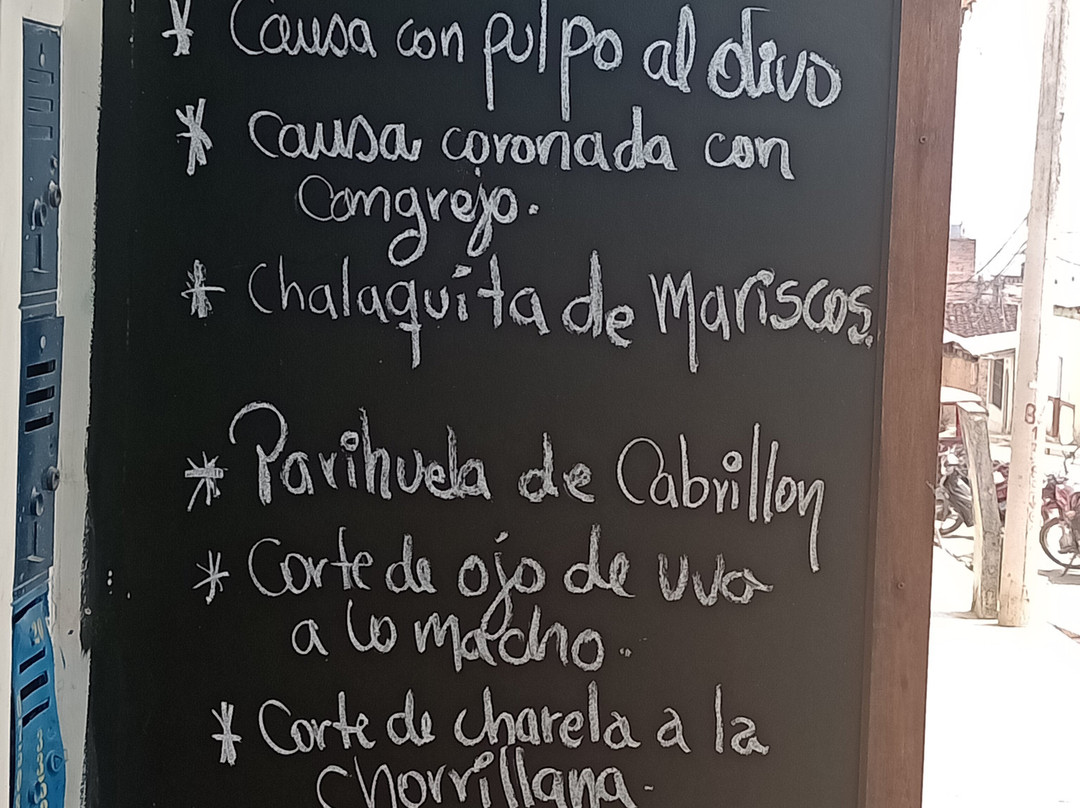 * Causa con pulpo al olivo
* Causa coronada con
Congrejo.
* Chalaquita de Mariscos.
* Parihuela de Cabrillon
* Corte de ojo de uva
a lo macho.
* Corte de charela a la
Chorrillana.